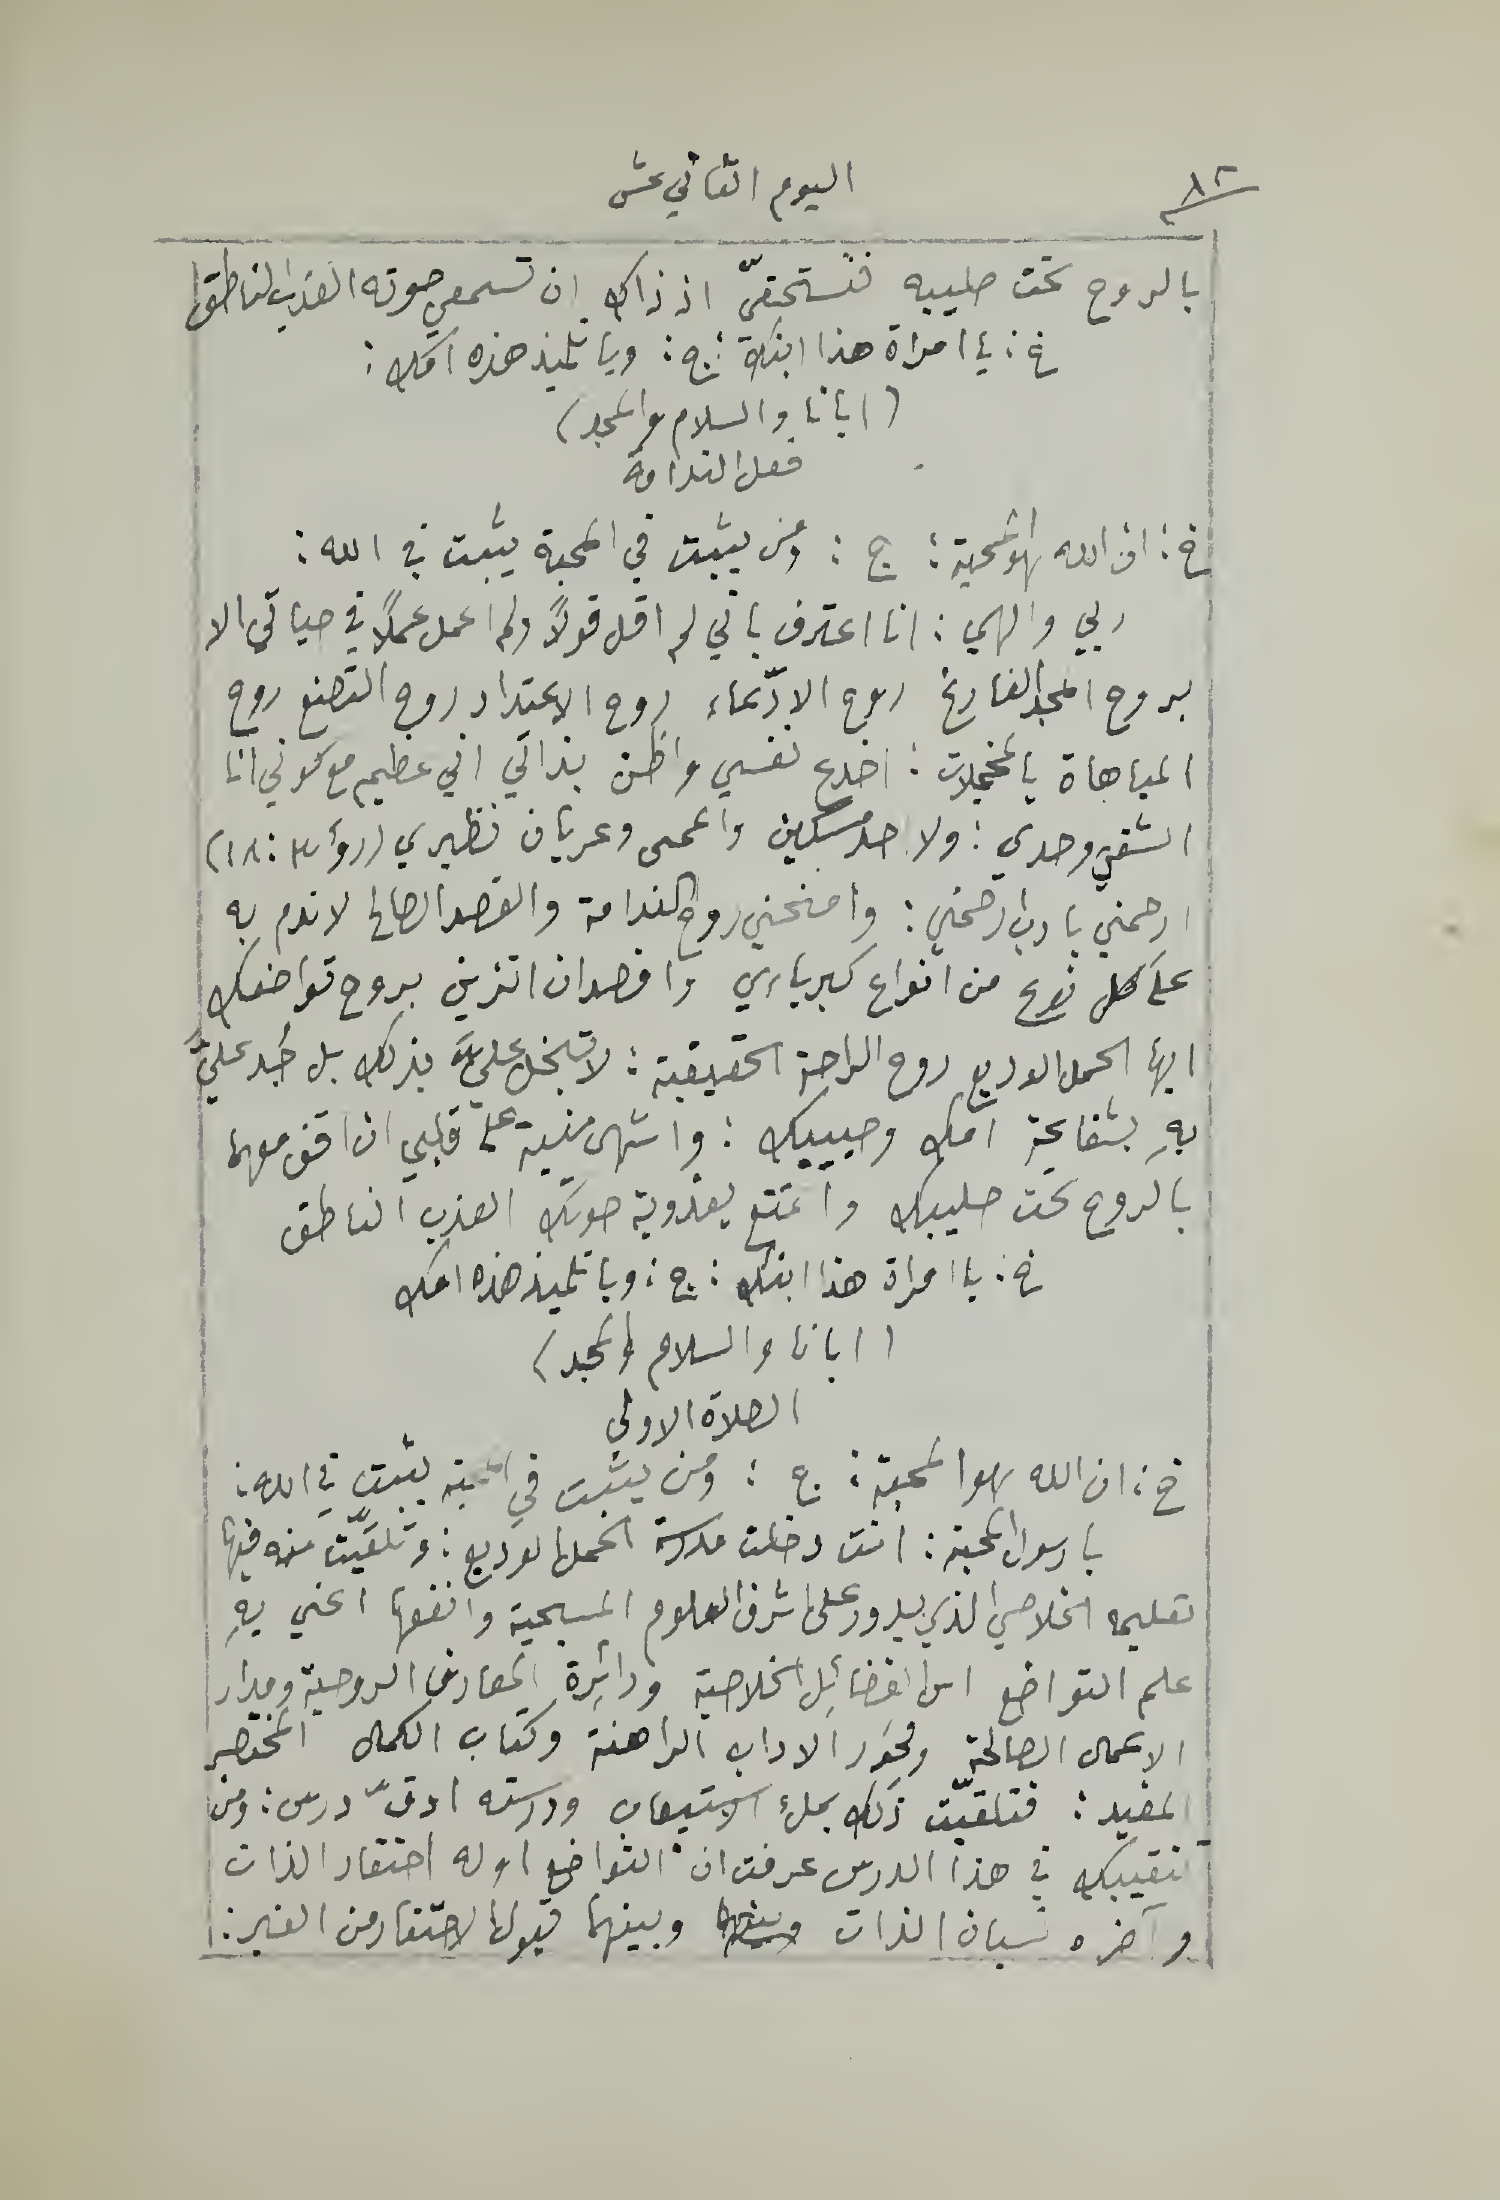 ٨٢
اليوم الثاني عشر
بالروح تحت صليبه فتستحقيّ اذ ذاك ان تسمعي صوته العذب الناطق
خ : يا امراة هذا ابنك : ج : ويا تلميذ هذه امك :
( ابانا والسلام والمجد )
فعل الندامة
خ : ان الله لهو المحبة : ج : ومن يثبت في المحبة يثبت في الله :
ربي والهي : انا اعترف باني لم اقل قولاً ولم اعمل عملاً في حياتي الا
بروح المجد الفارغ روح الادّعاء روح الاعتداد روح التصنع روح
المباهاة بالمخجلات : اخدع نفسي واظن بذاتي اني عظيم مع كوني انا
الشقي وحدي : ولا احد مسكين واعمى وعريان نظيري (رؤ ٣ : ١٨)
ارحمني يا رب ارحمني : وامنحني روح الندامة والقصد الصالح لاندم به
على كل نوع من انواع كبرياءي واقصد ان اتزين بروح تواضعك
ايها الحمل الوديع روح الراحة الحقيقية : لا تبخل عليَّ بذلك بل جُد عليَّ
بهِ بشفاعة امك وحبيبك : واشهى منية على قلبي ان اقف معهما
بالروح تحت صليبك واتمتع بعذوبة صوتك العذب الناطق
خ : يا امراة هذا ابنك : ج : ويا تلميذ هذه امك
( ابانا والسلام والمجد )
الصلاة الاولى
خ : ان الله لهو المحبة : ج : ومن يثبت في المحبة يثبت في الله :
يا رسول المحبة : انت دخلت مدرسة الحمل الوديع : وتلقيّت منه فيها
تعليمه الخلاصي الذي يدور على اشرف العلوم المسيحية وانفعها اعني بهِ
علم التواضع اس الفضائل الخلاصية ودائرة المعارف الروحية ومدار
الاعمال الصالحة ومحور الاداب الراهنة وكتاب الكمال المختصر
المفيد : فتلقيّت ذلك بملء الاستيعاب ودرسته ادقّ درس : ومن
تنقيبك في هذا الدرس عرفت ان التواضع اوله احتقار الذات
وآخره نسيان الذات وبينهما قبولها الاحتقار من الغير :